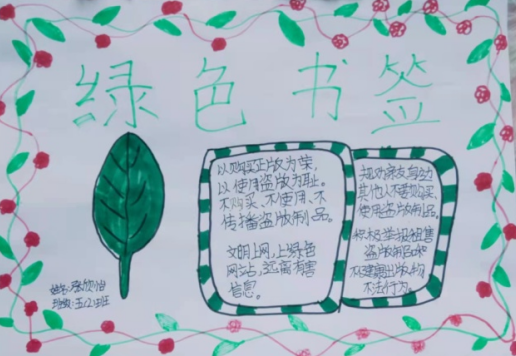 绿色书签
以购买正版为荣,
以使用盗版为耻。
不购买、不使用、不
传播盗版制品。
文明上网,上绿色
网站,远离有害
信息。
规劝亲友身边
其他人不要购买、
使用盗版制品。
积极举报销售
盗版制品和
不法行为。
姓名:张
班级:五(2)班